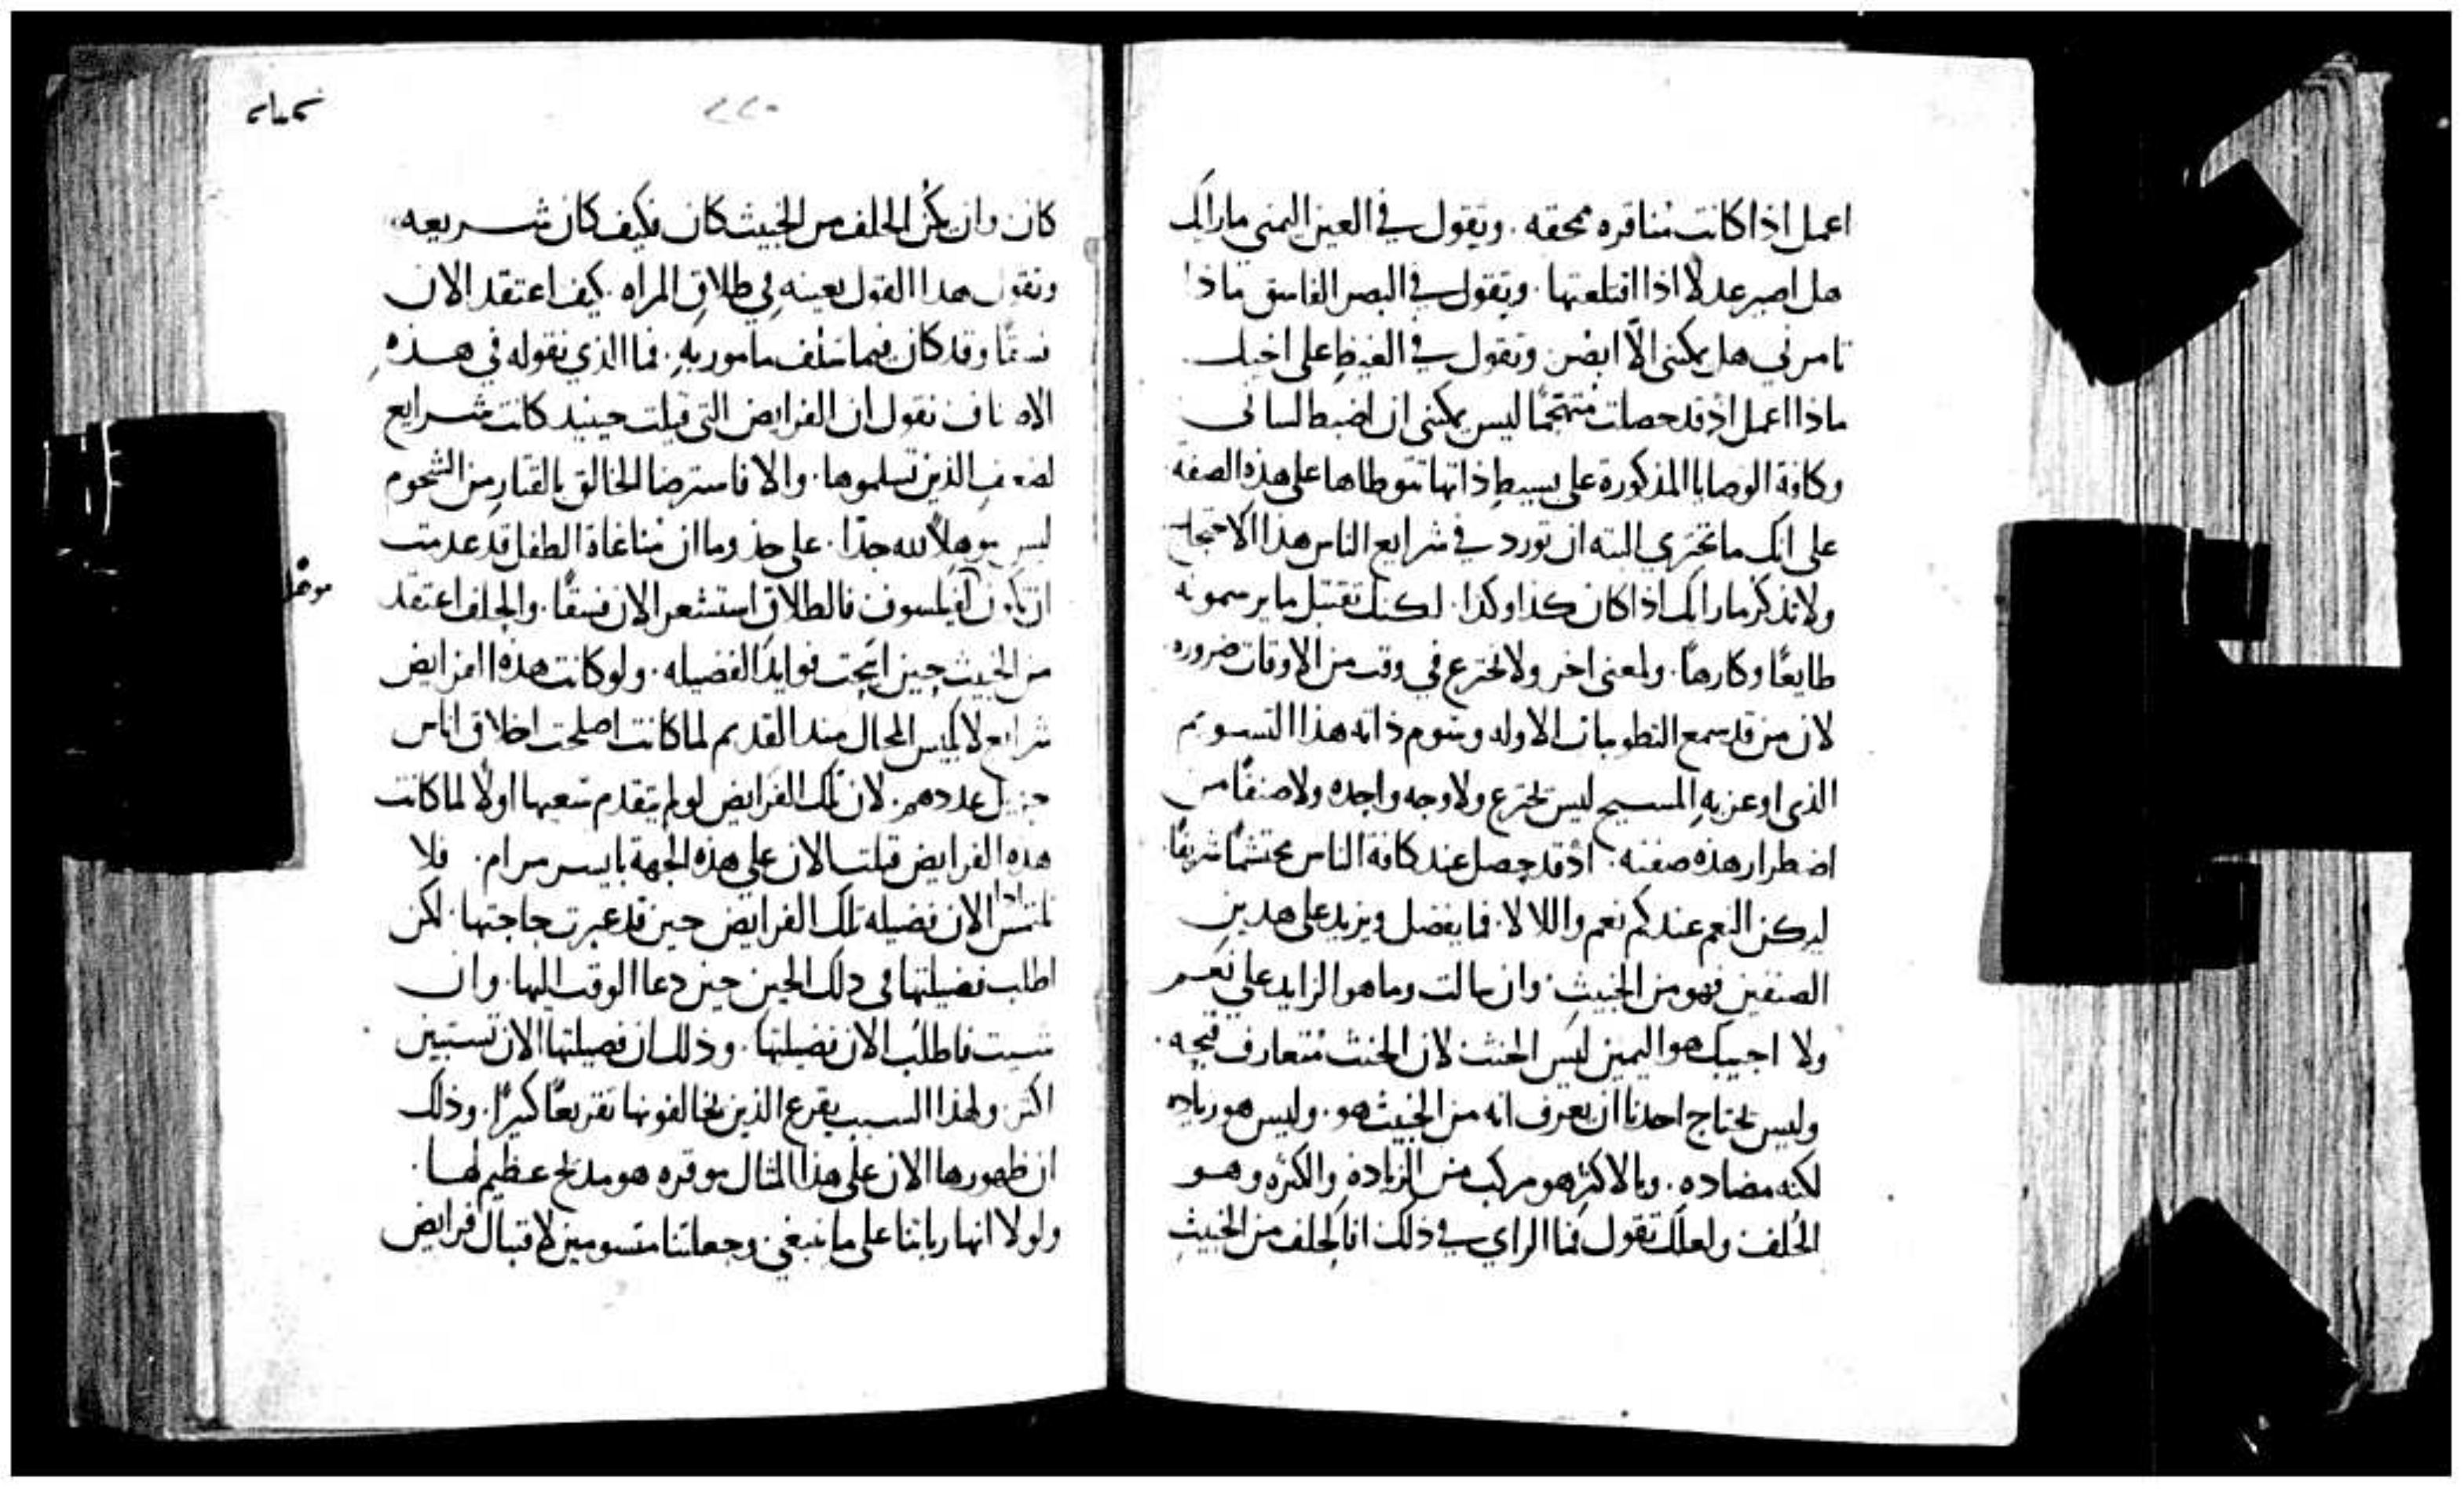 اعمل اذا كانت مناقره محقه . وتقول في العين اليمنى ماراك
هل اصير عدلاً اذا اقتلعتها . وتقول في البصر الفاسق ماذا
تامرني هل يمكنني الّا ابصر وتقول في الغيظ على اخيك
ماذا اعمل اذ قد حصلت متهجمًا ليس يمكنني ان اضبط لساني
وكافة الوصايا المذكورة على بسيط ذاتها تتوطاها على هذه الصفة
على انك ما تجتري البته ان تورد في شرايع الناس هذا الاحتجاج
ولا تذكر ماراك اذا كان كذا وكذا . لكنك تقتبل ما يرسمونه
طايعًا وكارهًا . ولمعنى اخر ولا تخترع في وقت من الاوقات ضروره
لان من قد سمع التطوبات الاوله وسوم ذاته هذا التسويم
الذي اوعز به المسيح ليس يخترع ولا وجه واحده ولا صنفًا من
اضطرار هذه صفته . اذ قد حصل عند كافة الناس محتشمًا شريفًا
ليكن النعم عندكم نعم واللا لا . فما يفضل ويزيد على هدين
الصنفين فهو من الخبيث . وان سالت وما هو الزايد على نعم
ولا اجيبك هو اليمين ليس الحنث لان الحنث متعارف قبحه .
وليس يحتاج احدنا ان يعرف انه من الخبيث هو . وليس هو زياده
لكنه مضاده . وبالاكثر هو مركب من الزيادة والكثره وهو
الحلف ولعلك تقول فما الراي في ذلك ان الحلف من الخبيث
٢٢٠
كان وان يكن الحلف من الخبيث كان فكيف كان شريعه
ونقول هدا القول بعينه في طلاق المراه . كيف اعتقد الان
فسقًا وقد كان فيما سلف مامور به . فما الذي نقوله في هذه
الاصناف نقول ان الفرايض التي قيلت حينيد كانت شرايع
لضعف الذين تسلموها . والا فاسترضا الخالق بالقتار من الشحوم
ليس موهلاً لله جدًا . على حذو ما ان مناغاة الطفل قد عدمت
ان تكون لفيلسوف فالطلاق استشعر الان فسقًا . والحلف اعتقد
من الخبيث حين انجحت فوايد الفضيله . ولو كانت هذه الفرايض
شرايع لابليس المحال مند القديم لما كانت اصلحت اخلاق اناس
جزيل عددهم . لان تلك الفرايض لو لم تتقدم سعيها اولاً لما كانت
هده الفرايض قبلت الان على هذه الجهة بايسر مرام . فلا
تلتمس اذا الان فضيله تلك الفرايض حين قد عبرت حاجتها . لكن
اطلب فضيلتها في دلك الحين حين دعا الوقت اليها . وان
شيت فاطلب الان فضيلتها . وذلك ان فضيلتها الان تستبين
اكثر ولهذا السبب يقرع الذين يخالفونها تقريعًا كبيرًا . وذلك
ان ظهورها الان على هذا المثال موقره هو مديح عظيم لها .
ولولا انها ربتنا على ما ينبغي وجعلتنا متسومين لاقتبال فرايض